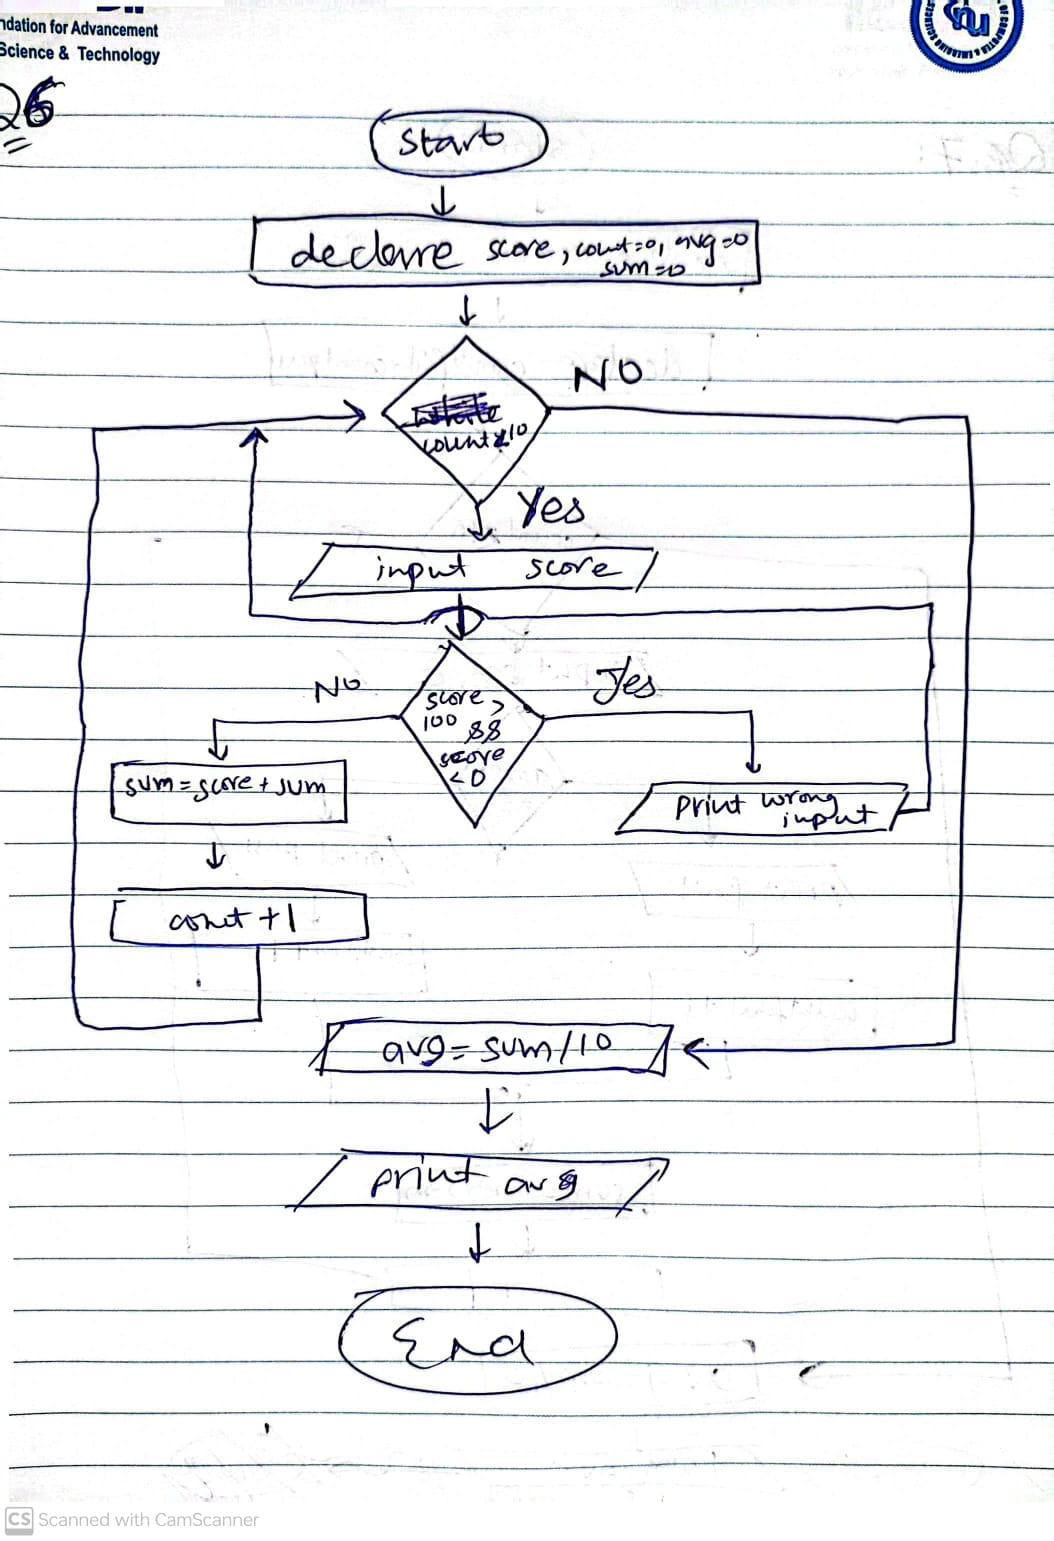 ndation for Advancement
Science & Technology
OF COMPUTER & EMERGING SCIENCES
nu
Q6
Start
declare score, count=0, avg=0
sum=0
NO
count<10
Yes
input score
NO
Yes
score >
100 &&
score
<0
sum=score+sum
Print wrong
input
count +1
avg=sum/10
print avg
End
CS Scanned with CamScanner